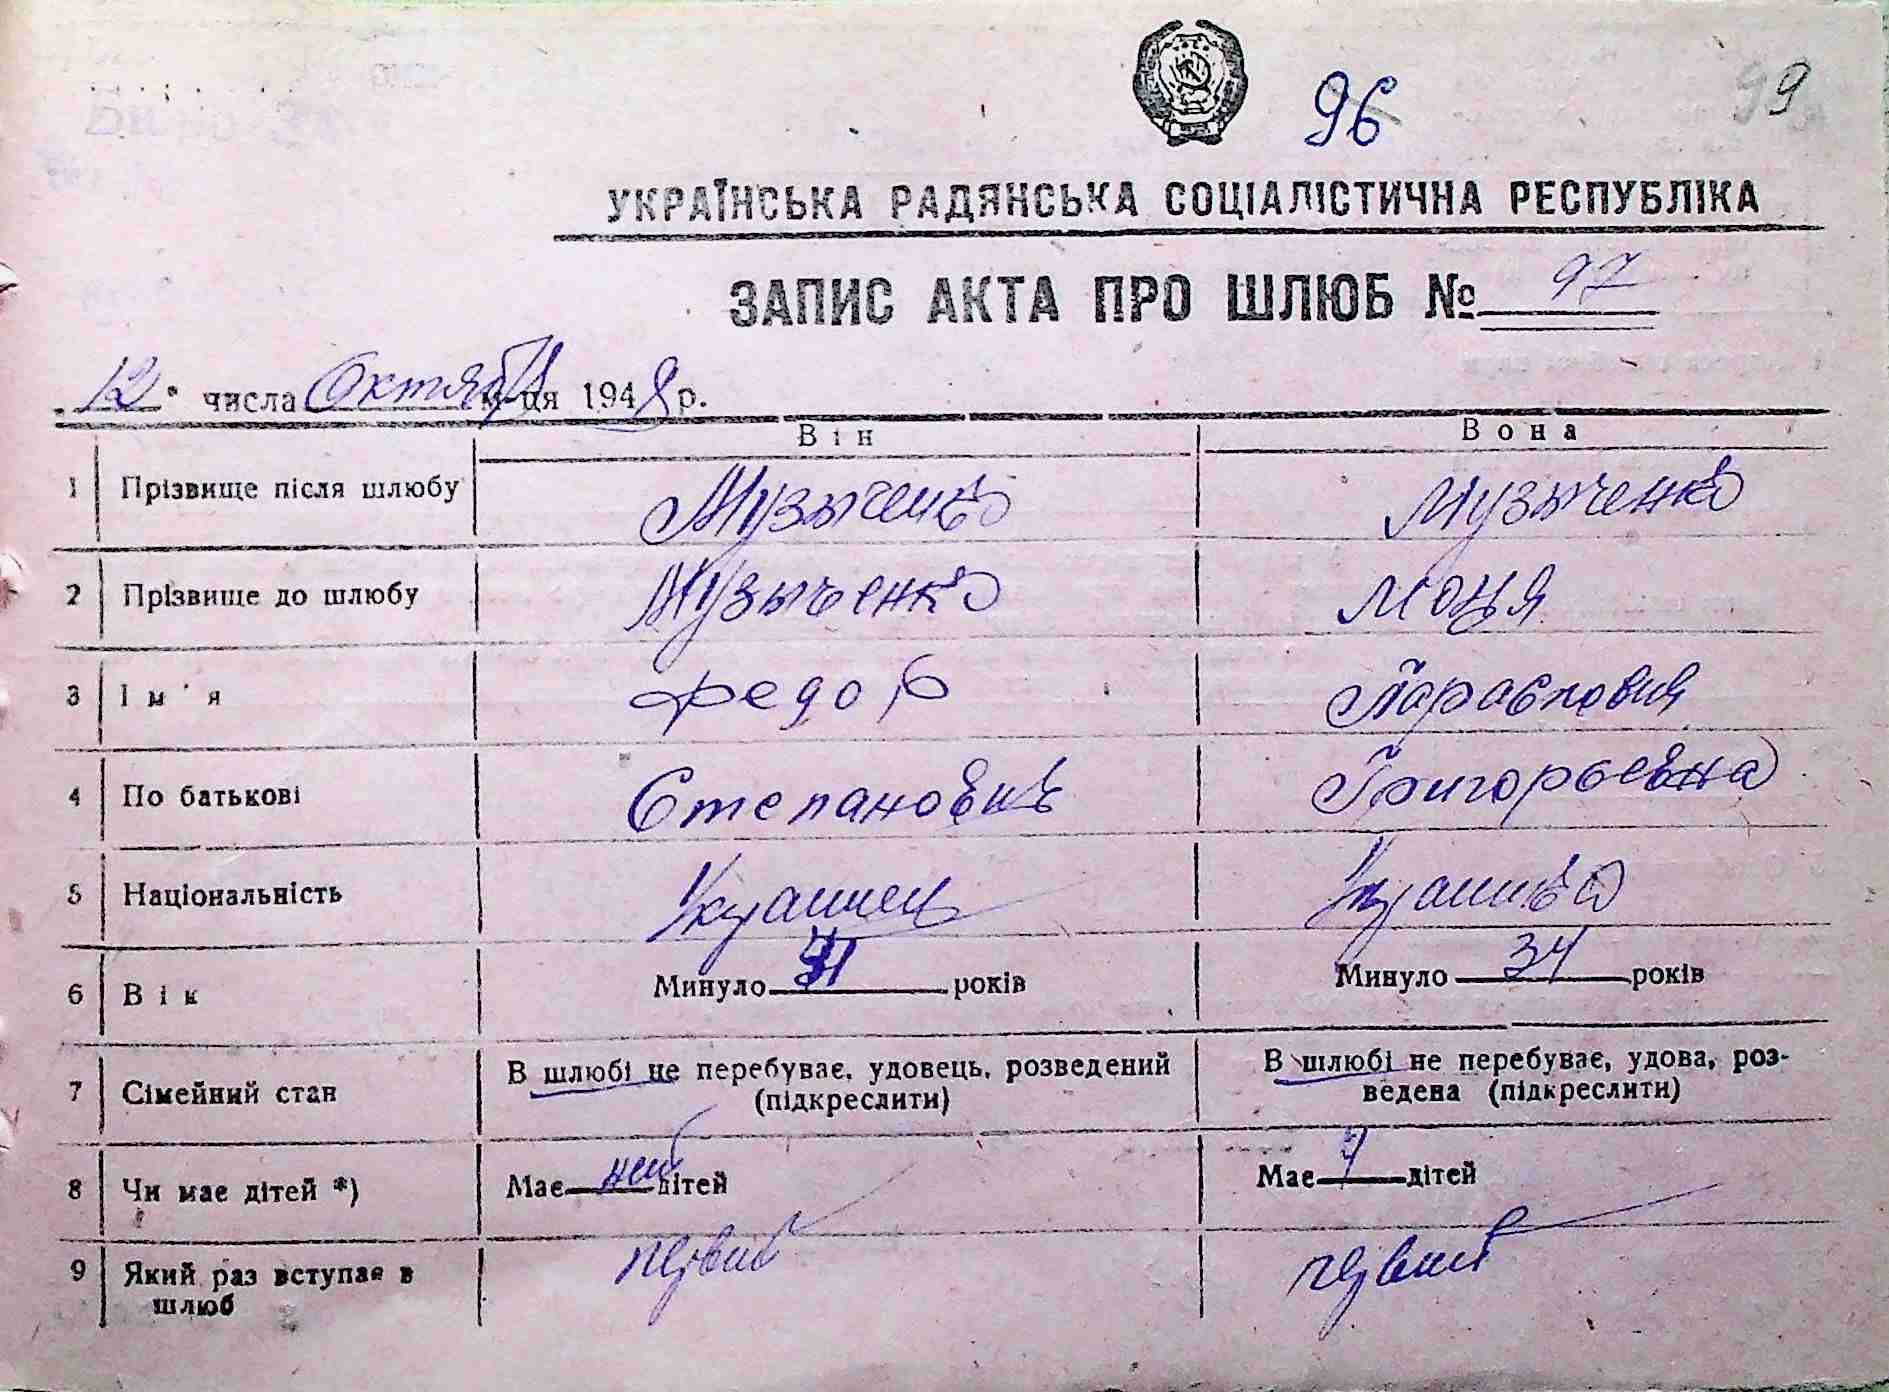 96 99
УКРАЇНСЬКА РАДЯНСЬКА СОЦІАЛІСТИЧНА РЕСПУБЛІКА
ЗАПИС АКТА ПРО ШЛЮБ № 97
„12" числа Октября м-ця 1948 р.
Він Вона
1 Прізвище після шлюбу Музыченко Музыченко
2 Прізвище до шлюбу Музыченко Моця
3 Ім'я Федор Парасковия
4 По батькові Степанович Григорьевна
5 Національність Украинец Украинка
6 Вік Минуло років Минуло 34 років
7 Сімейний стан В шлюбі не перебуває, удовець, розведений В шлюбі не перебуває, удова, роз-
(підкреслити) ведена (підкреслити)
8 Чи має дітей *) Має нет дітей Має дітей
9 Який раз вступає в первий первий
шлюб